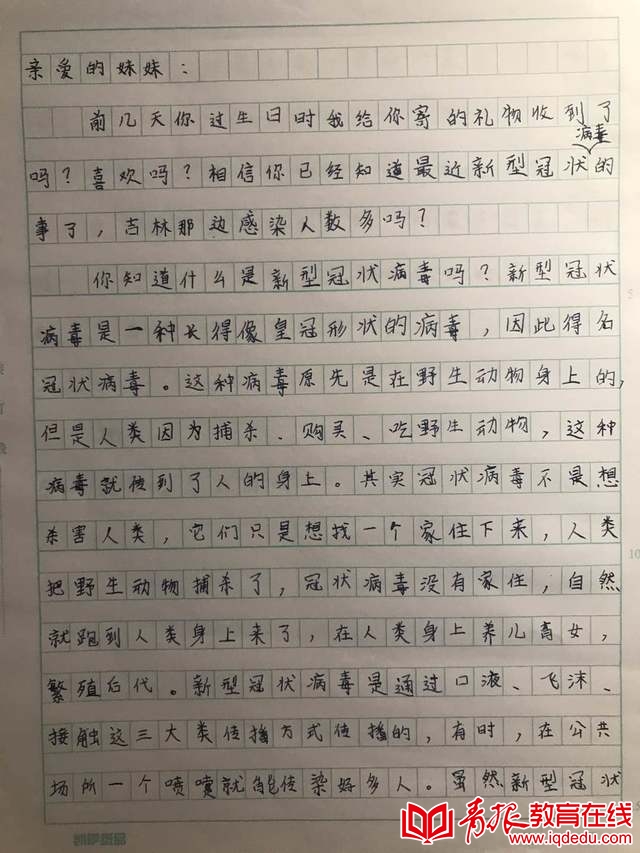 亲爱的妹妹：
前几天你过生日时我给你寄的礼物收到了
病毒
吗？喜欢吗？相信你已经知道最近新型冠状的
事了，吉林那边感染人数多吗？
你知道什么是新型冠状病毒吗？新型冠状
病毒是一种长得像皇冠形状的病毒，因此得名
冠状病毒。这种病毒原先是在野生动物身上的，
但是人类因为捕杀、购买、吃野生动物，这种
病毒就传到了人的身上。其实冠状病毒不是想
杀害人类，它们只是想找一个家住下来，人类
把野生动物捕杀了，冠状病毒没有家住，自然
就跑到人类身上来了，在人类身上养儿育女，
繁殖后代。新型冠状病毒是通过口液、飞沫、
接触这三大类传播方式传播的，有时，在公共
场所一个喷嚏就能传染好多人。虽然新型冠状
5
10
青报教育在线
www.iqdedu.com